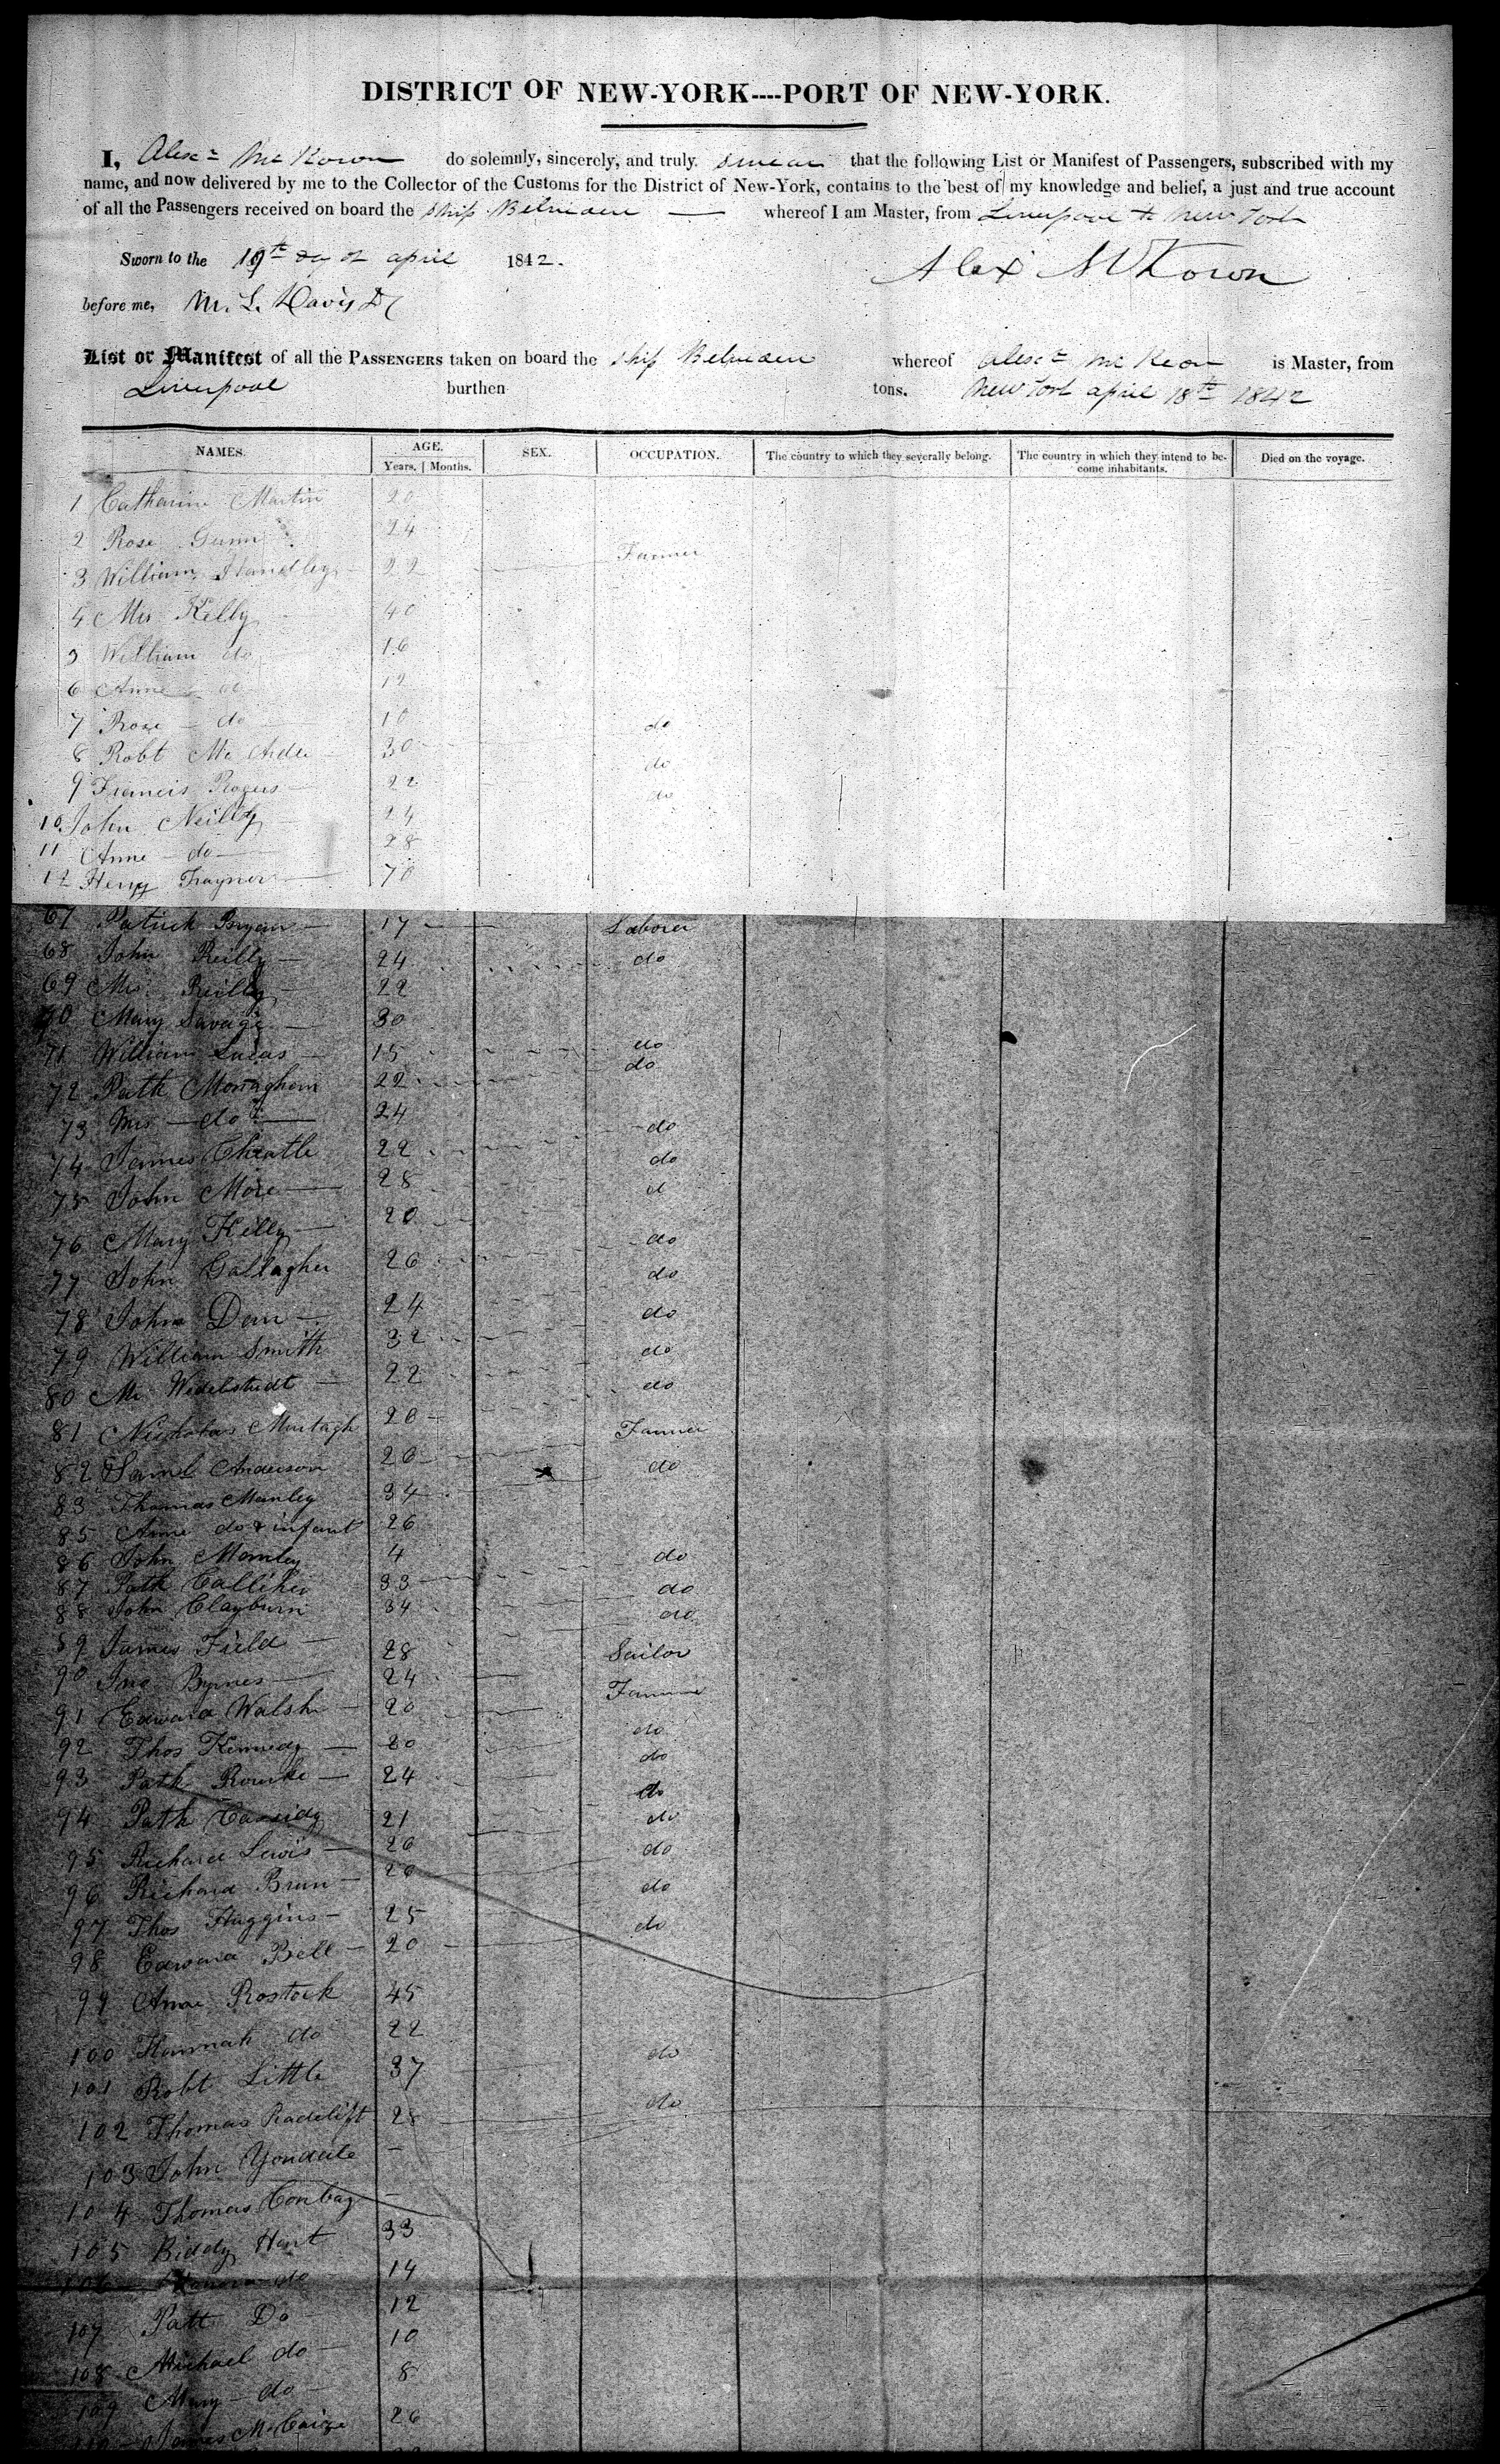 DISTRICT OF NEW-YORK----PORT OF NEW-YORK.
I, Alexr Mc Kown do solemnly, sincerely, and truly, swear that the following List or Manifest of Passengers, subscribed with my
name, and now delivered by me to the Collector of the Customs for the District of New-York, contains to the best of my knowledge and belief, a just and true account
of all the Passengers received on board the ship Belvidere whereof I am Master, from Liverpool to New York
Sworn to the 19th day of april 1842.
Alex McKown
before me, M. L. Davis
List or Manifest of all the PASSENGERS taken on board the ship Belvidere whereof Alexr Mc Keon is Master, from
Liverpool burthen tons. New York april 18th 1842
NAMES. AGE. SEX. OCCUPATION. The country to which they severally belong. The country in which they intend to be- Died on the voyage.
Years. Months. come inhabitants.
1 Catharine Martin 20
2 Rose Gunn 24
3 William Handley 22 Farmer
4 Mrs Kelly 40
5 William do 16
6 Anne do 12
7 Rose do 10
8 Robt Mc Ardle 30 do
9 Francis Rogers 22 do
10 John Neilly 24 do
11 Anne do 28
12 Henry Traynor 70
67 Patrick Bryan 17 Laborer
68 John Reilly 24 do
69 Mrs Reilly 22
70 Mary Savage 30
71 William Lucas 15 do
72 Patk Monaghan 22 do
73 Mrs do 24
74 James Cheatle 22 do
75 John More 28 do
76 Mary Kelly 20 d
77 John Gallagher 26 do
78 John Dem 24 do
79 William Smith 32 do
80 Mr Widelstedt 22 do
81 Nicholas Murtagh 20 do
82 Saml Anderson 26 Farmer
83 Thomas Manley 34 do
85 Anne do & infant 26
86 John Manley 4
87 Patk Calliher 33 do
88 John Clayburn 34 do
89 James Field 28 do
90 Jno Byrnes 24 Sailor
91 Edward Walsh 20 Farmer
92 Thos Kennedy 20 do
93 Patk Rourke 24 do
94 Patk Cassidy 21 do
95 Richard Lewis 26 do
96 Richard Brun 26 do
97 Thos Huggins 25 do
98 Edward Bell 20 do
99 Anne Rostock 45
100 Hannah do 22
101 Robt Little 37 do
102 Thomas Radclift 28 do
103 John
104 Thomas Conbay
105 Biddy Hart 33
106 do 14
107 Patt Do 12
108 Michael do 10
109 Mary do 8
110 James McCaige 26